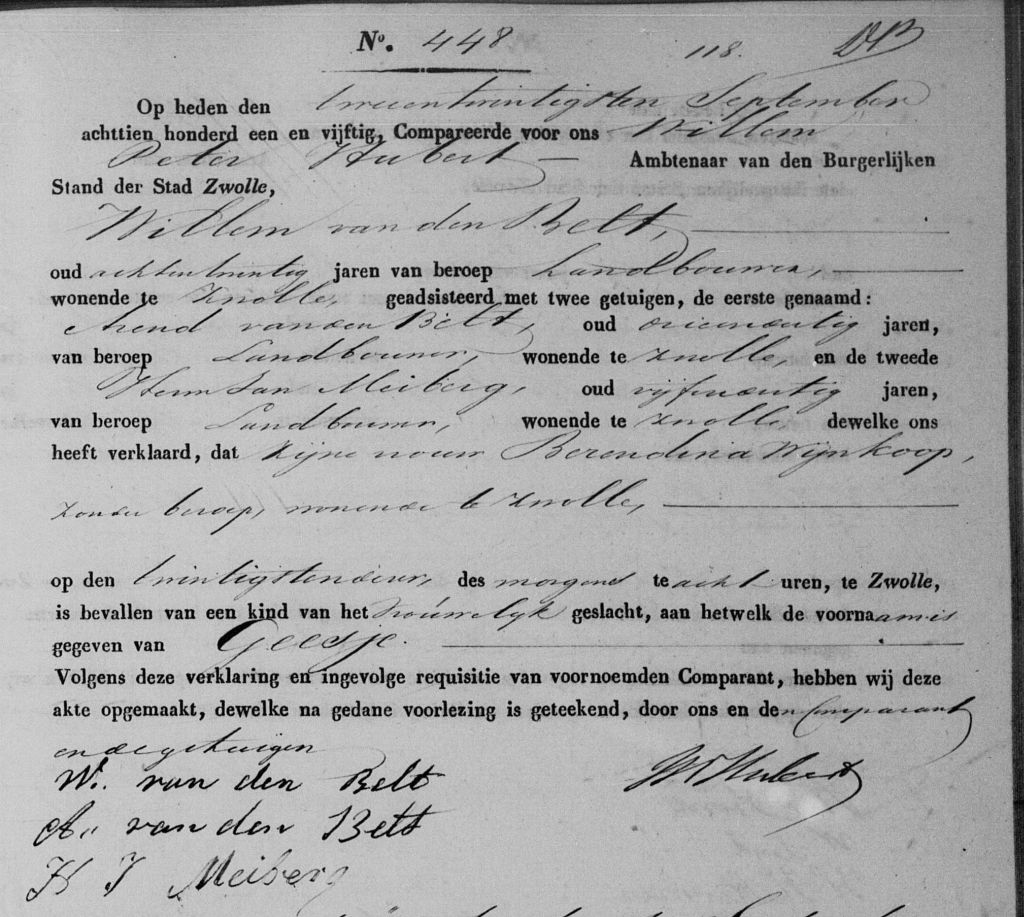 No. 448 118.
Op heden den tweeentwintigsten September
achttien honderd een en vijftig, Compareerde voor ons Willem
Peter Hubert — Ambtenaar van den Burgerlijken
Stand der Stad Zwolle,
Willem van den Belt,
oud achtentwintig jaren van beroep Landbouwer,
wonende te Zwolle, geadsisteerd met twee getuigen, de eerste genaamd:
Arend van den Belt, oud drieendertig jaren,
van beroep Landbouwer, wonende te Zwolle, en de tweede
Herm Jan Meiberg, oud vijfendertig jaren,
van beroep Landbouwer, wonende te Zwolle dewelke ons
heeft verklaard, dat Zijne vrouw Berendina Wijnkoop,
zonder beroep, wonende te Zwolle,
op den twintigsten dezer, des morgens te acht uren, te Zwolle,
is bevallen van een kind van het vrouwelijk geslacht, aan hetwelk de voornaam is
gegeven van Geesje.
Volgens deze verklaring en ingevolge requisitie van voornoemden Comparant, hebben wij deze
akte opgemaakt, dewelke na gedane voorlezing is geteekend, door ons en den Comparant
en de getuigen
W. van den Belt WPHubert
A. van den Belt
H J Meiberg